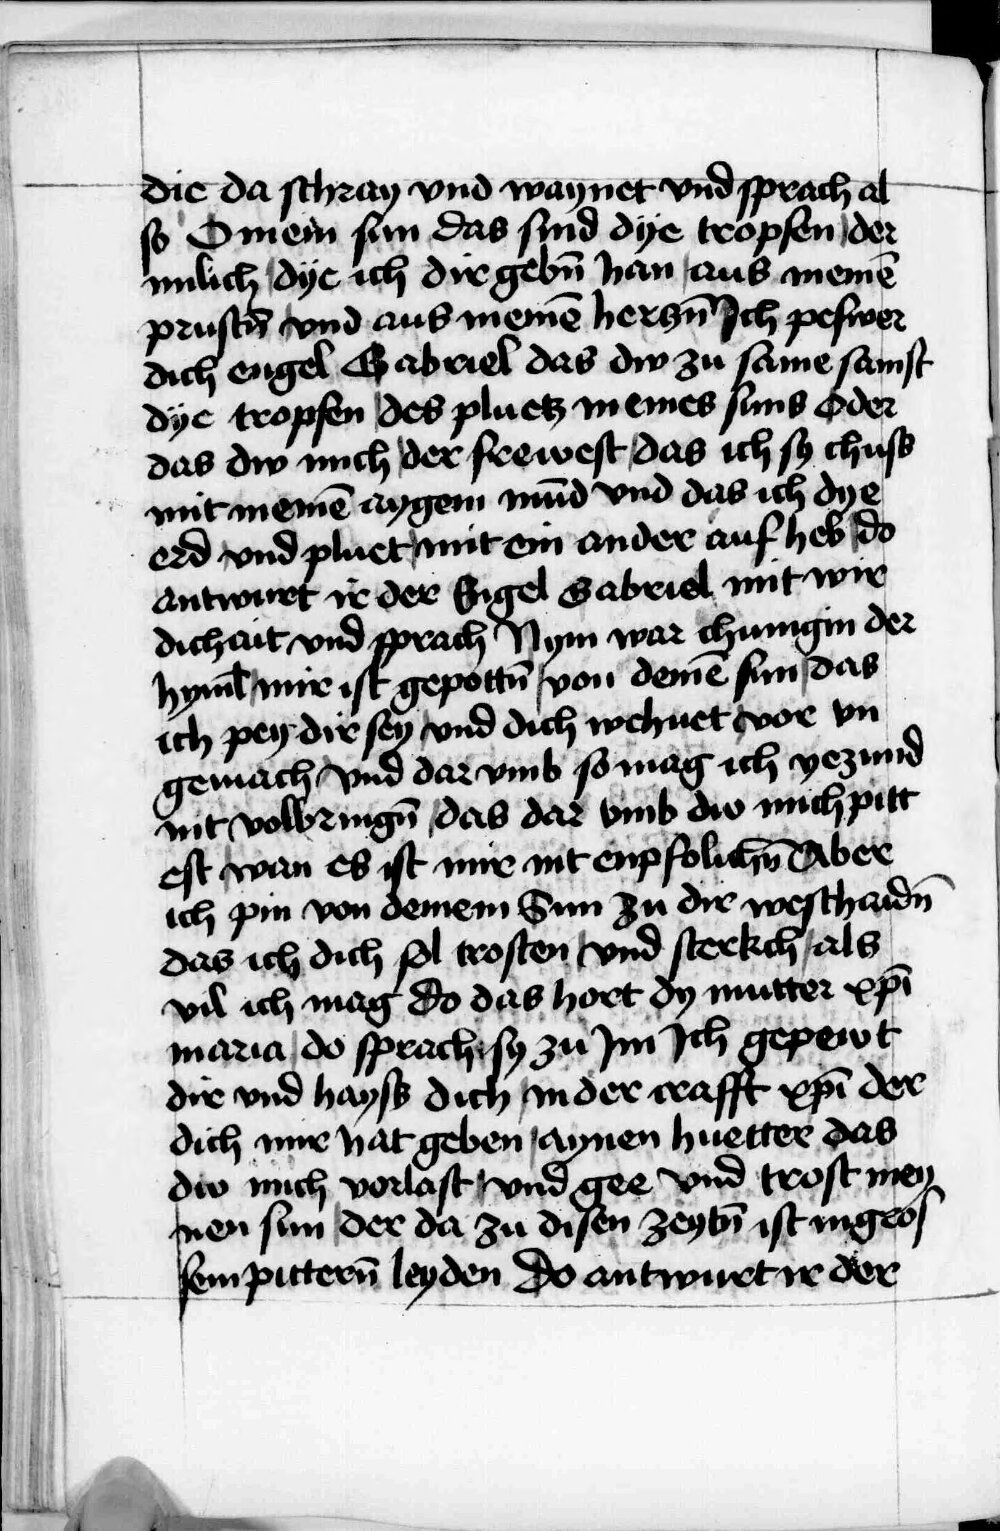 die da schray vnd waynet vnd sprach al
so O mein sun das sind dÿe tropfen der
milich dÿe ich dir gebn̄ han aus meinē
prustn̄ vnd aus meinē herczn̄ Ich peswer
dich engel Gabriel das dw zu same samst
dÿe tropfen des pluetz meines suns Oder
das dw mich der frewest das ich sy chuss
mit meinē aygem mūd vnd das ich dye
erd vnd pluet mit ein ander auf heb do
antwurt ir der Engel Gabriel mit wir
dichait vnd sprach Nym war chunigin der
hyml mir ist gepottn̄ von deinē sun das
ich pey dir sey vnd dich wehuet vor vn
gemach vnd dar vmb so mag ich yezund
nit volbringn̄ das dar vmb dw mich pitt
est wan es ist mir nit enpfolichn̄ Aber
ich pin von deinem Sun zu dir weschaidn̄
das ich dich sol trosten vnd sterkch als
vil ich mag Do das hort dy mutter xp̄i
maria do sprach sy zu Im Ich gepewt
dir vnd hayss dich in der crafft xp̄i der
dich mir hat geben aynen huetter das
dw mich vorlast vnd gee vnd trost mey
nen sun der da zu disen zeytn̄ ist in gros
sem pittern̄ leyden Do antwurt ir der